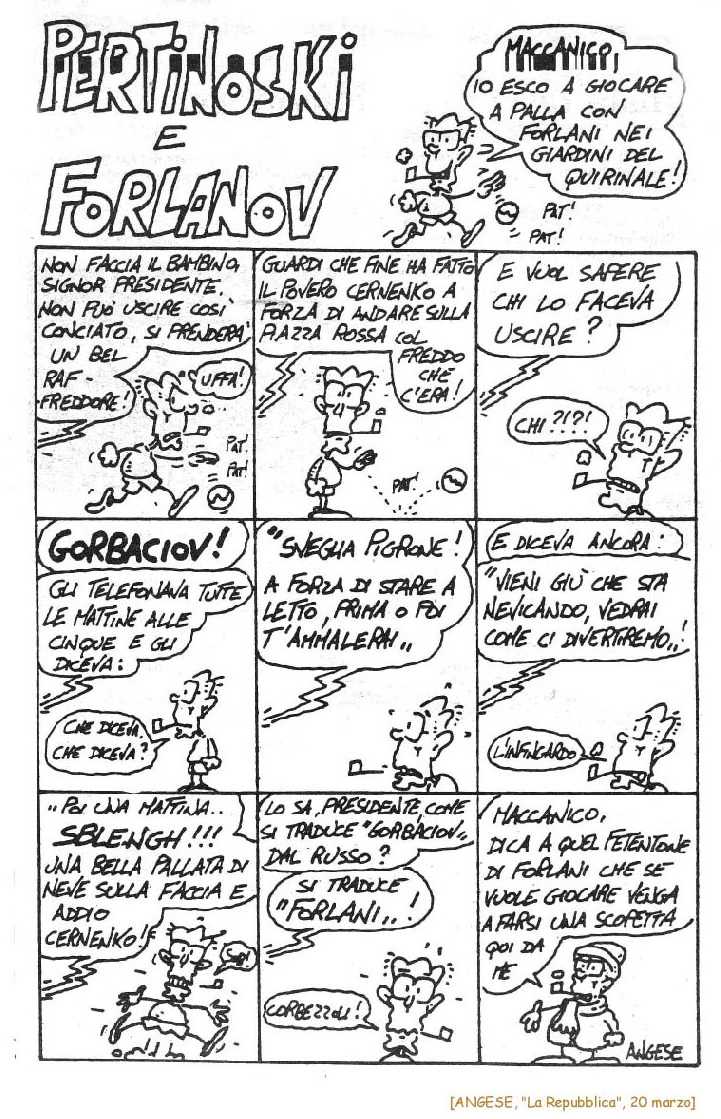 PERTINOSKI
E
FORLANOV
MACCANICO,
IO ESCO A GIOCARE
A PALLA CON
FORLANI NEI
GIARDINI DEL
QUIRINALE!
PAT!
PAT!
NON FACCIA IL BAMBINO,
SIGNOR PRESIDENTE.
NON PUÒ USCIRE COSÌ
CONCIATO, SI PRENDERÀ
UN BEL
RAF-
FREDDORE!
UFFA!
PAT!
PAT!
GUARDI CHE FINE HA FATTO
IL POVERO CERNENKO A
FORZA DI ANDARE SULLA
PIAZZA ROSSA COL
FREDDO
CHE
C'ERA!
PAT!
E VUOL SAPERE
CHI LO FACEVA
USCIRE?
CHI?!?!
GORBACIOV!
GLI TELEFONAVA TUTTE
LE MATTINE ALLE
CINQUE E GLI
DICEVA:
CHE DICEVA,
CHE DICEVA?
"SVEGLIA PIGRONE!
A FORZA DI STARE A
LETTO, PRIMA O POI
T'AMMALERAI..
E DICEVA ANCORA:
"VIENI GIÙ CHE STA
NEVICANDO, VEDRAI
COME CI DIVERTIREMO..!
L'INFINGARDO
..POI UNA MATTINA..
SBLENGH!!!
UNA BELLA PALLATA DI
NEVE SULLA FACCIA E
ADDIO
CERNENKO!
LO SA, PRESIDENTE, COME
SI TRADUCE "GORBACIOV"
DAL RUSSO?
SI TRADUCE
"FORLANI"..!
CORBEZZOLI!
MACCANICO,
DICA A QUEL FETENTONE
DI FORLANI CHE SE
VUOLE GIOCARE VENGA
A FARSI UNA SCOPETTA
QUI DA
ME
ANGESE
[ANGESE, "La Repubblica", 20 marzo]